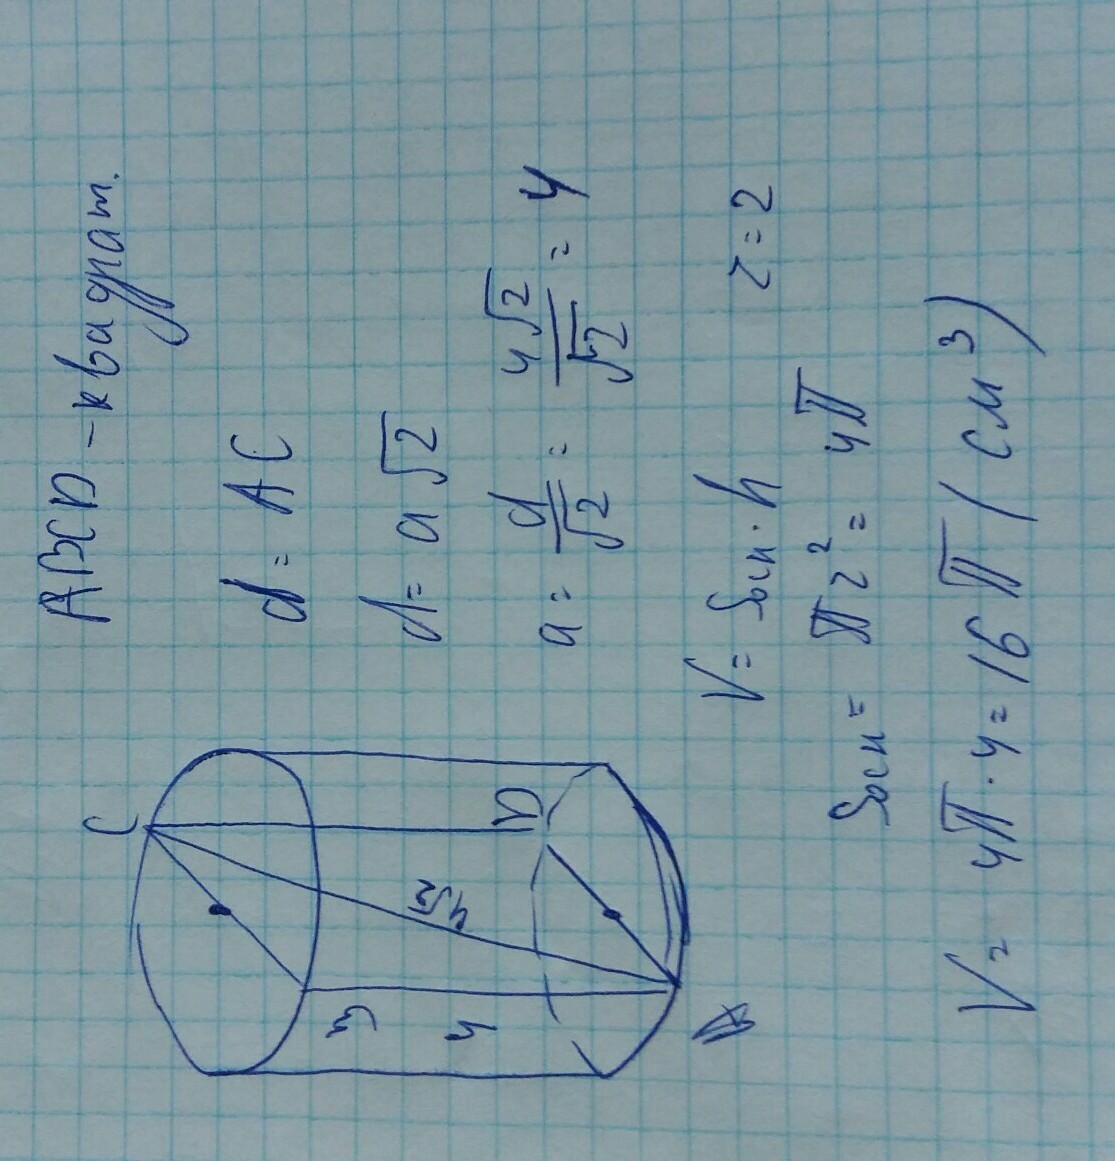 ABCD - квадрат.
d = AC
d = a√2
a = d/√2 = 4√2/√2 = 4
V = Sосн · h
r = 2
Sосн = πr² = 4π
V = 4π · 4 = 16π (см³)
C
D
4√2
B
4
A